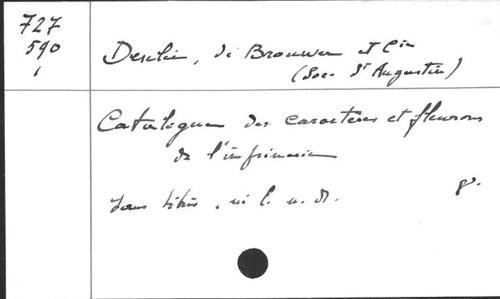 727
590
1
Desclée, de Brouwer et Cie
(Soc. St Augustin)
Catalogue des caractères et fleurons
de l'imprimerie
Sans titre, ni l. n. d. 8°.